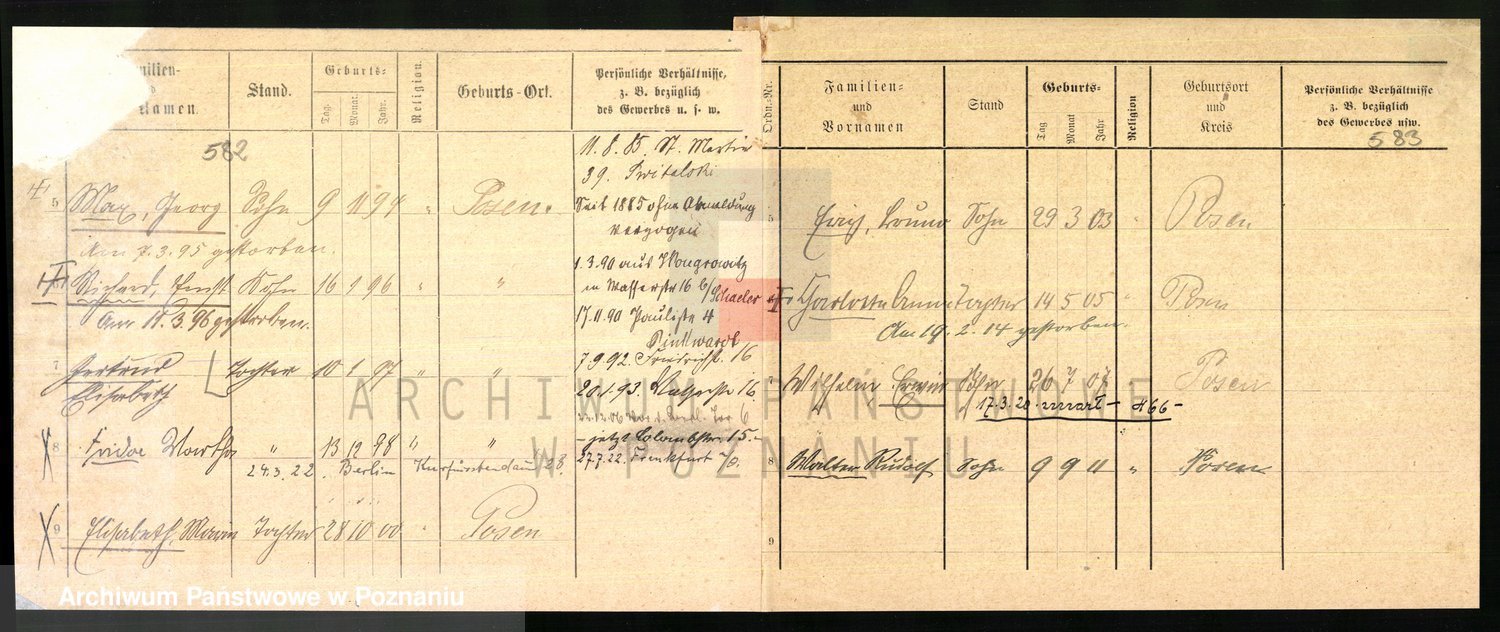 Familien- und Vornamen.
Stand.
Geburts-
Tag. Monat. Jahr.
Religion.
Geburts-Ort.
Persönliche Verhältnisse,
z. B. bezüglich
des Gewerbes u. s. w.
582
5 Max, Georg Sohn 9 11 94 " Posen.
Am 7.3.95 gestorben.
Richard, Ernst Sohn 16 1 96 " "
Am 11.3.96 gestorben.
7 Gertrud Tochter 10 1 97 " "
Elisabeth
8 Frida Martha " 13 12 98 " "
24.3.22. Berlin Kurfürstendamm
9 Elisabeth, Maria Tochter 28 10 00 " Posen
11.8.85. St. Martin
39.
Seit 1885 ohne Abmeldung
verzogen
1.3.90 aus Wongrowitz
in Wasserstr 16 b/
Schaeler
17.11.90 Paulistr 4
7.9.92. Friedrichstr. 16
20.1.93. 16
- jetzt Colombstr. 15.-
27.7.22. Frankfurt a/O.
Ordn.-Nr.
Familien-
und
Vornamen
Stand
Geburts-
Tag Monat Jahr
Religion
Geburtsort
und
Kreis
Persönliche Verhältnisse
z. B. bezüglich
des Gewerbes usw.
583
5 Erich, Bruno Sohn 29 3 03 " Posen
Charlotte Anna Tochter 14 5 05 " Posen
Am 19.2.14 gestorben.
7 Wilhelm Erwin Sohn 26 7 07 " Posen
17.3.20. - 466 -
8 Walter Rudolf Sohn 9 9 11 " Posen
9
ARCHIWUM PAŃSTWOWE
W POZNANIU
Archiwum Państwowe w Poznaniu